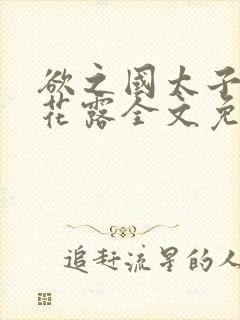 欲之國太子
花露全文免
追赶流星的人